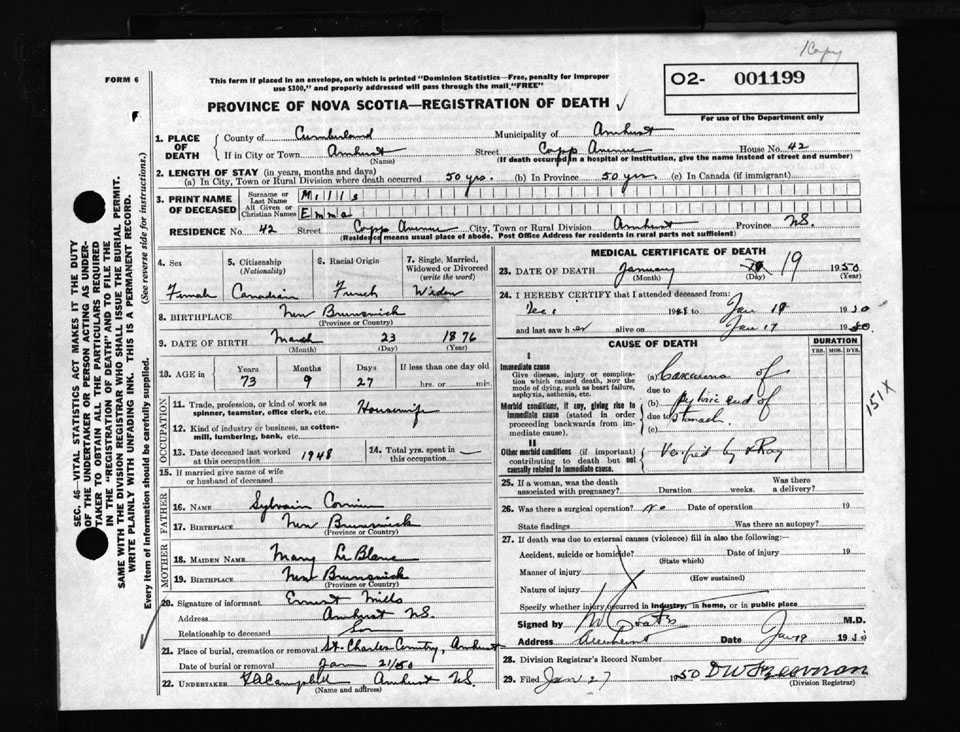 1 Copy
FORM 6
This form if placed in an envelope, on which is printed "Dominion Statistics—Free, penalty for improper
use $300," and properly addressed will pass through the mail "FREE"
O2- 001199
For use of the Department only
PROVINCE OF NOVA SCOTIA—REGISTRATION OF DEATH
SEC. 46—VITAL STATISTICS ACT MAKES IT THE DUTY
OF THE UNDERTAKER OR PERSON ACTING AS UNDER-
TAKER TO OBTAIN ALL THE PARTICULARS REQUIRED
IN THE "REGISTRATION OF DEATH" AND TO FILE THE
SAME WITH THE DIVISION REGISTRAR WHO SHALL ISSUE THE BURIAL PERMIT.
WRITE PLAINLY WITH UNFADING INK. THIS IS A PERMANENT RECORD.
Every item of information should be carefully supplied. (See reverse side for instructions.)
1. PLACE OF DEATH County of Cumberland Municipality of Amherst
If in City or Town Amherst Street Copp Avenue House No. 42
(Name) (If death occurred in a hospital or institution, give the name instead of street and number)
2. LENGTH OF STAY (in years, months and days)
(a) In City, Town or Rural Division where death occurred 50 yrs. (b) In Province 50 yrs. (c) In Canada (if immigrant)
3. PRINT NAME OF DECEASED Surname or Last Name Mills
All Given or Christian Names Emma
RESIDENCE No. 42 Street Copp Avenue City, Town or Rural Division Amherst Province N.S.
(Residence means usual place of abode. Post Office Address for residents in rural parts not sufficient)
4. Sex 5. Citizenship (Nationality) 6. Racial Origin 7. Single, Married, Widowed or Divorced (write the word)
Female Canadian French Widow
8. BIRTHPLACE New Brunswick
(Province or Country)
9. DATE OF BIRTH March 23 1876
(Month) (Day) (Year)
10. AGE in Years Months Days If less than one day old
73 9 27 hrs. or min.
OCCUPATION
11. Trade, profession, or kind of work as spinner, teamster, office clerk, etc. Housewife
12. Kind of industry or business, as cotton-mill, lumbering, bank, etc.
13. Date deceased last worked at this occupation 1948 14. Total yrs. spent in this occupation —
15. If married give name of wife or husband of deceased
FATHER
16. NAME Sylvain
17. BIRTHPLACE New Brunswick
(Province or Country)
MOTHER
18. MAIDEN NAME Mary Le Blanc
19. BIRTHPLACE New Brunswick
(Province or Country)
20. Signature of informant Ernest Mills
Address Amherst N.S.
Relationship to deceased Son
21. Place of burial, cremation or removal St. Charles Cemetry, Amherst
Date of burial or removal Jan 21/50
22. UNDERTAKER Campbell Amherst N.S.
(Name and address)
MEDICAL CERTIFICATE OF DEATH
23. DATE OF DEATH January 19 1950
(Month) (Day) (Year)
24. I HEREBY CERTIFY that I attended deceased from:
Dec 1948 to Jan 19 1950
and last saw her alive on Jan 17 1950
CAUSE OF DEATH DURATION
YRS. MOS. DYS.
I
Immediate cause
Give disease, injury or complication which caused death, NOT the mode of dying, such as heart failure, asphyxia, asthenia, etc.
(a) Carcinoma of
due to
Morbid conditions, if any, giving rise to immediate cause (stated in order proceeding backwards from immediate cause).
(b) pyloric end of
due to stomach.
(c)
151 X
II
Other morbid conditions (if important) contributing to death but not causally related to immediate cause.
Verified by xRay
25. If a woman, was the death associated with pregnancy? Duration weeks. Was there a delivery?
26. Was there a surgical operation? No Date of operation 19
State findings Was there an autopsy?
27. If death was due to external causes (violence) fill in also the following:—
Accident, suicide or homicide? Date of injury 19
(State which)
Manner of injury
(How sustained)
Nature of injury
Specify whether injury occurred in industry, in home, or in public place
Signed by M.D.
Address Amherst Date Jan 19 1950
28. Division Registrar's Record Number
29. Filed Jan 27 1950
(Division Registrar)